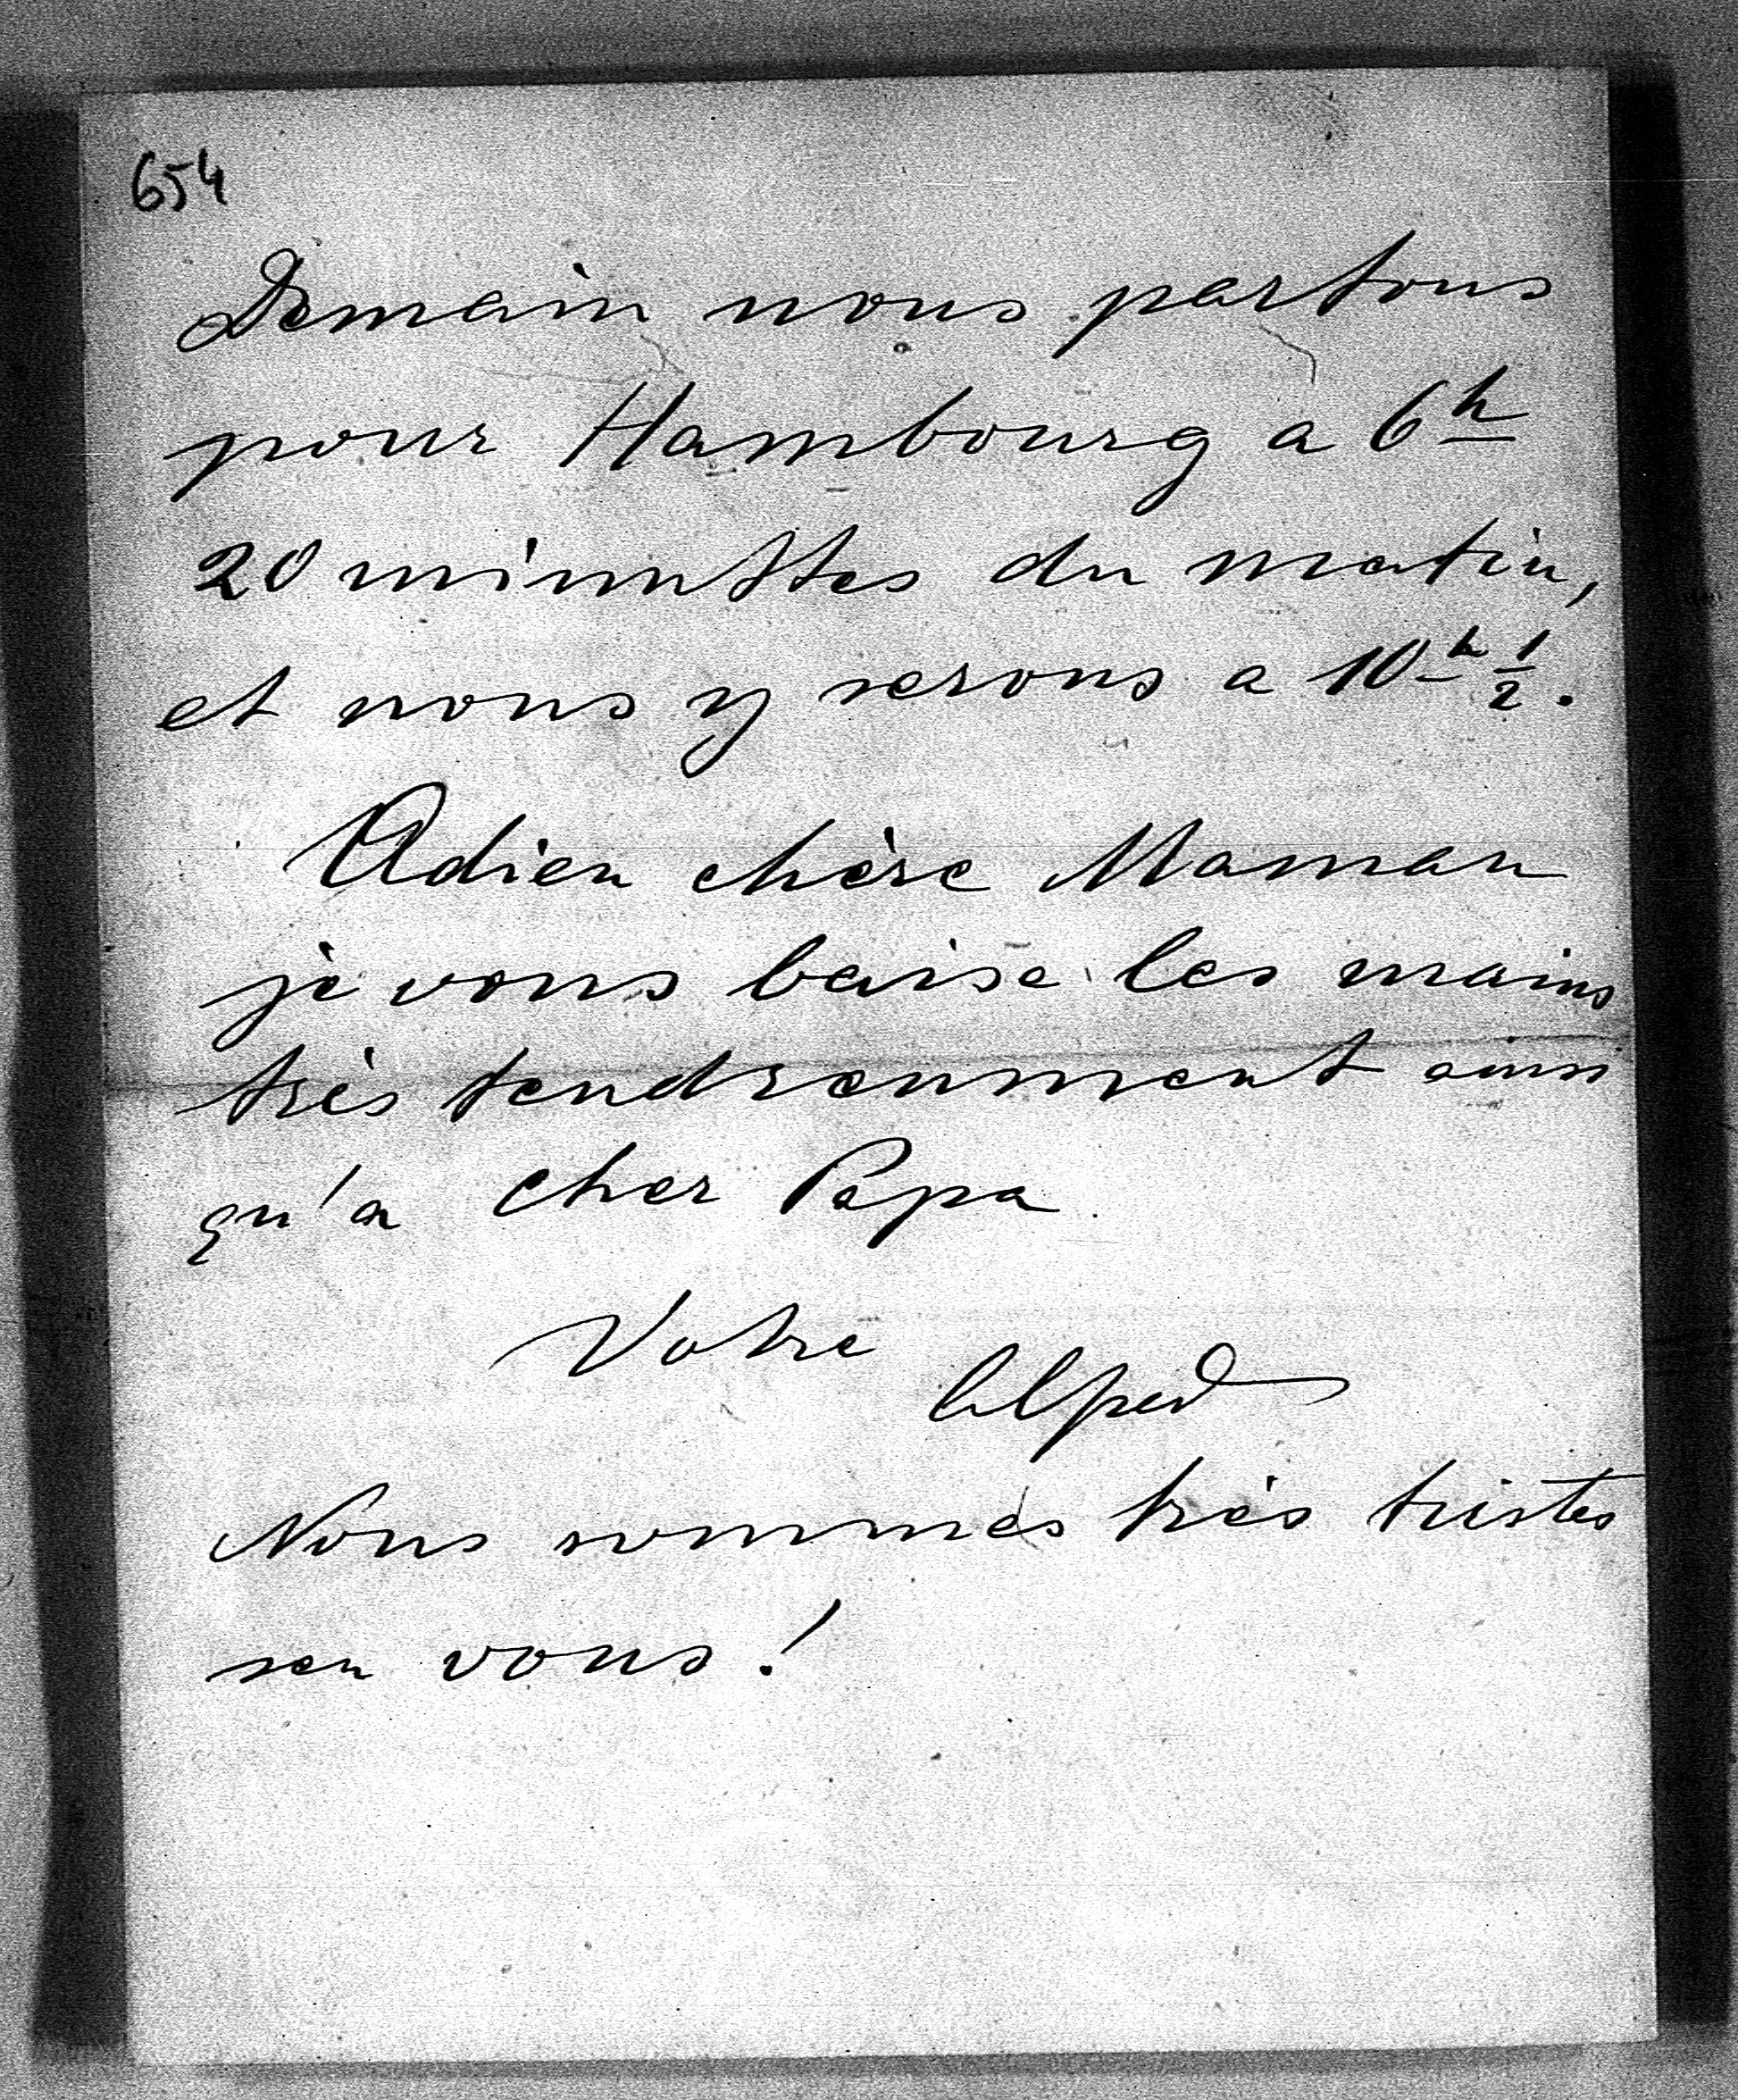 654
Demain nous partons
pour Hambourg a 6h
20 minuttes du matin,
et nous y serons a 10h 1/2.
Adieu chère Maman
je vous baise les mains
très tendrenment ainsi
qu'a cher Papa
Votre
Alfred
Nous sommes très tristes
sen vous!